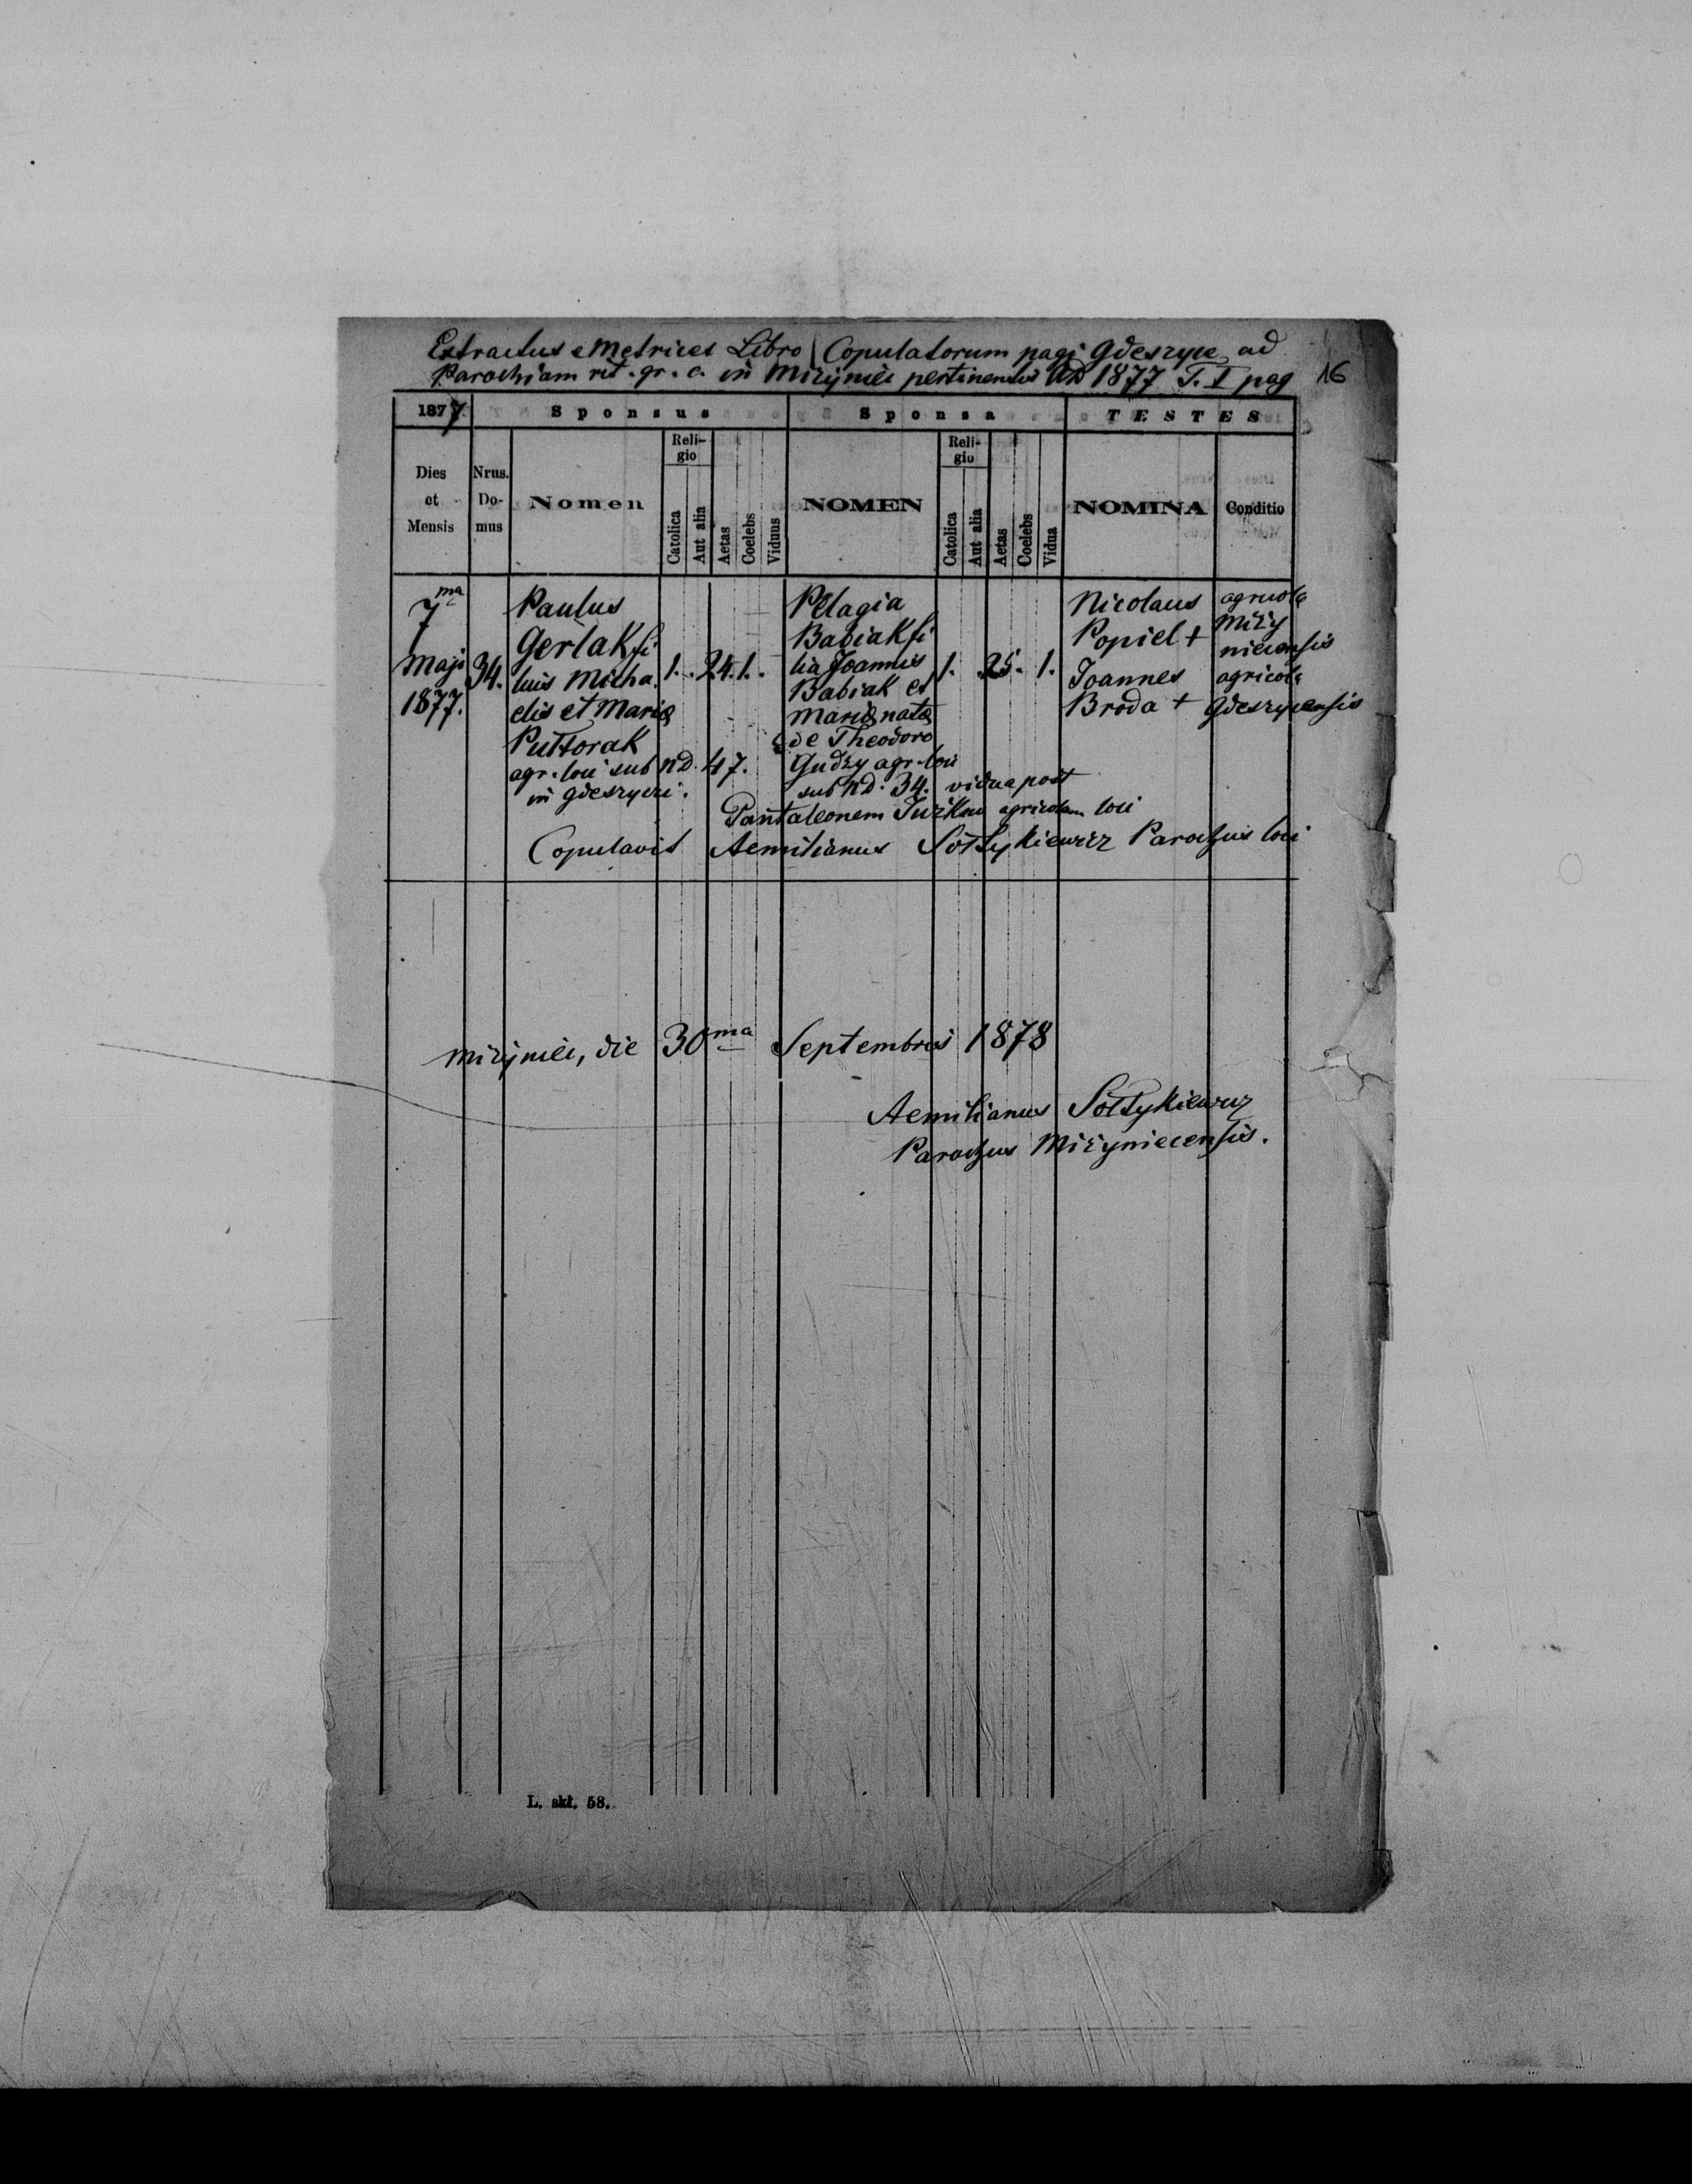 Extractus e Metrices Libro Copulatorum pagi Gdeszyce ad
Parochiam rit. gr. c. in Miżyniec pertinentis AD 1877 T. I pag 16
1877 Sponsus Sponsa TESTES
Dies et Mensis
Nrus. Do-mus
Nomen
Reli-gio
Catolica
Aut alia
Aetas
Coelebs
Viduus
NOMEN
Reli-gio
Catolica
Aut alia
Aetas
Coelebs
Vidua
NOMINA
Conditio
7ma
Maji
1877.
34.
Paulus
Gerlak fi
lius Micha
elis et Mariæ
Pułtorak
agr. loci sub nd. 47.
in Gdeszyci.
1. 24. 1.
Pelagia
Babiak fi
lia Joannis
Babiak et
Mariæ natæ
de Theodoro
Gudzy agr. loci
sub nd. 34. vidua post
Pantaleonem agricolam loci
1. 25. 1.
Nicolaus
Popiel +
Joannes
Broda +
agricola
Miży
niecensis
agricola
Gdeszycensis
Copulavit Aemilianus Sołtykiewicz Parochus loci
Miżyniec, die 30ma Septembris 1878
Aemilianus Sołtykiewicz
Parochus Miżyniecensis.
L. skł. 58.